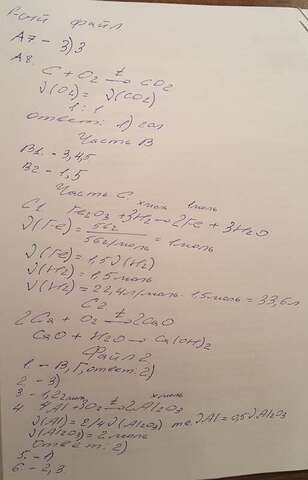 файл
А7 - 3) 3
А8.
C + O2 t→ CO2
ϑ(O2) = ϑ(CO2)
1 : 1
ответ: 1)
Часть В
В1. - 3,4,5
В2 - 1,5
Часть С. x моль 1 моль
С1 Fe2O3 + 3H2 → 2Fe + 3H2O
ϑ(Fe) = 56г / 56г/моль = 1 моль
ϑ(Fe) = 1,5ϑ(H2)
ϑ(H2) = 1,5 моль
V(H2) = 22,4 л/моль · 1,5 моль = 33,6 л
С2
2Ca + O2 t→ 2CaO
CaO + H2O → Ca(OH)2
Файл 2
1. - В, Г, ответ: 2)
2 - 3)
x моль
4 4Al + 3O2 t→ 2Al2O3
ϑ(Al) = 2/4 ϑ(Al2O3) те ϑAl = 0,5ϑAl2O3
ϑ(Al2O3) = 2 моль
ответ: 2)
5. - 1)
6 - 2,3